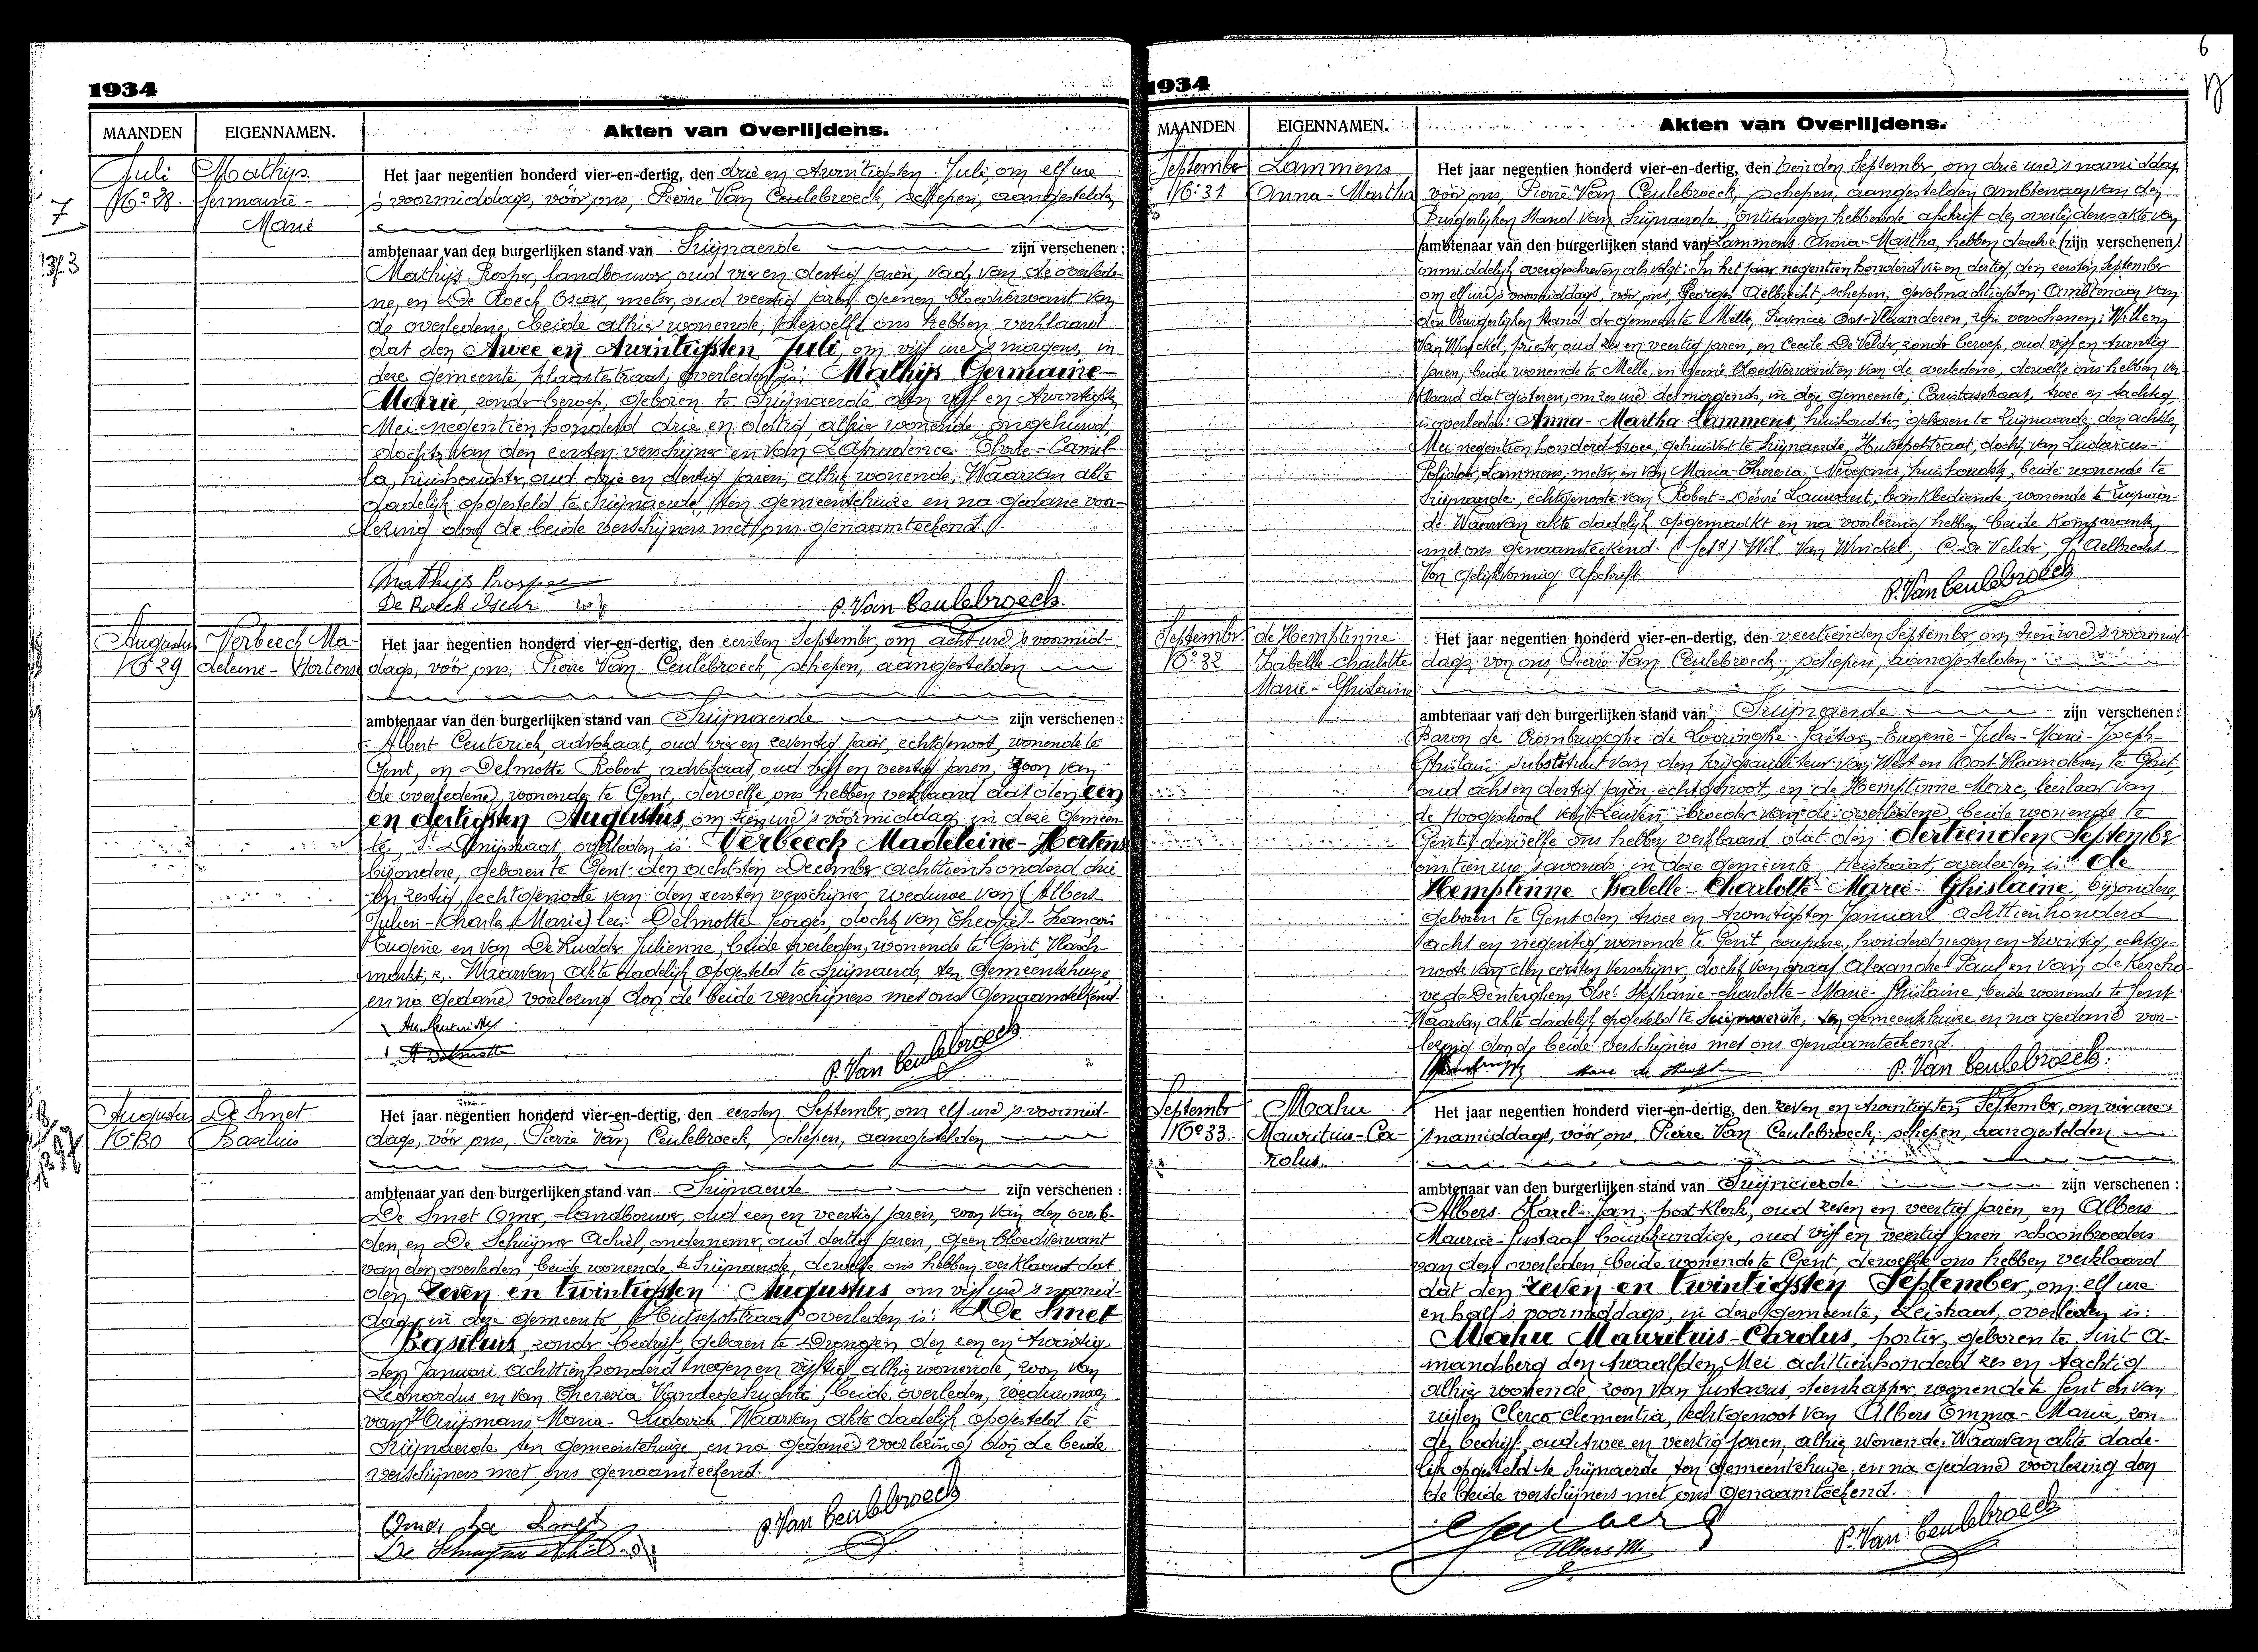 1934
MAANDEN
EIGENNAMEN.
Akten van Overlijdens.
Juli
No 28.
Mathijs
Germaine-
Marie
7
Het jaar negentien honderd vier-en-dertig, den drie en twintigsten Juli, om elf ure
's voormiddags, vóór ons, Pierre Van Ceulebroeck, schepen, aangestelden
ambtenaar van den burgerlijken stand van Zwijnaerde zijn verschenen:
Mathijs Prosper, landbouwer, oud vier en dertig jaren, vader van de overlede-
ne, en De Roeck Oscar, meter, oud veertig jaren, geenen bloedverwant van
de overledene, beide alhier wonende, dewelke ons hebben verklaard
dat den twee en twintigsten Juli, om vijf ure 's morgens, in
deze gemeente, overleden is: Mathijs Germaine
Marie, zonder beroep, geboren te Zwijnaerde den vijf en twintigsten
Mei negentien honderd drie en dertig, alhier wonende, ongehuwd,
dochter van den eersten verschijner en van Camil-
la, huishoudster, oud drie en dertig jaren, alhier wonende. Waarvan akte
dadelijk opgesteld te Zwijnaerde, ten gemeentehuize en na gedane voor-
lezing door de beide verschijners met ons genaamteekend.
Mathijs Prosper
De Roeck Oscar
P. Van Ceulebroeck
Augustus
No 29
Verbeeck Ma-
deleine-Hortense
Het jaar negentien honderd vier-en-dertig, den eersten September, om acht ure 's voormid-
dags, vóór ons, Pierre Van Ceulebroeck, schepen, aangestelden
ambtenaar van den burgerlijken stand van Zwijnaerde zijn verschenen:
Albert Ceuterick, advokaat, oud vier en zeventig jaar, echtgenoot, wonende te
Gent, en Delmotte Robert, advokaat, oud vijf en veertig jaren, zoon van
de overledene, wonende te Gent, dewelke ons hebben verklaard dat den een
en dertigsten Augustus, om tien ure 's voormiddags in deze gemeen-
te, overleden is: Verbeeck Madeleine-Hortense
bijzondere, geboren te Gent den achtsten December achttienhonderd drie
en zestig, echtgenoote van den eersten verschijner, weduwe van (Albert
Julien-Charles Marie) Delmotte Georges, dochter van Theophil-François
Eugène en van De Ridder Julienne, beide overleden, wonende te Gent, Vlasch-
markt, Waarvan akte dadelijk opgesteld te Zwijnaerde ten gemeentehuize
en na gedane voorlezing door de beide verschijners met ons genaamteekend.
P. Van Ceulebroeck
Augustus
No 30
De Smet
Basilius
Het jaar negentien honderd vier-en-dertig, den eersten September, om elf ure 's voormid-
dags, vóór ons, Pierre Van Ceulebroeck, schepen, aangestelden
ambtenaar van den burgerlijken stand van Zwijnaerde zijn verschenen:
De Smet Omer, landbouwer, oud een en veertig jaren, zoon van den overle-
den, en De Schuijmer Achiel, ondernemer, oud dertig jaren, geen bloedverwant
van den overleden, beide wonende te Zwijnaerde, dewelke ons hebben verklaard dat
den zeven en twintigsten Augustus om vijf ure 's namid-
dags in deze gemeente, Hutsepotstraat overleden is: De Smet
Basilius, zonder bedrijf, geboren te Drongen den een en twintig-
sten Januari achttienhonderd negen en vijftig, alhier wonende, zoon van
Leonardus en van Theresia beide overleden, weduwnaar
van Huijsmans Maria-Ludovica. Waarvan akte dadelijk opgesteld te
Zwijnaerde ten gemeentehuize, en na gedane voorlezing door de beide
verschijners met ons genaamteekend.
Omer De Smet
P. Van Ceulebroeck
1934
6
MAANDEN
EIGENNAMEN.
Akten van Overlijdens.
September
No 31
Lammens
Anna-Martha
Het jaar negentien honderd vier-en-dertig, den tienden September, om drie ure 's namiddags
vóór ons, Pierre Van Ceulebroeck, schepen, aangestelden Ambtenaar van den
Burgerlijken Stand van Zwijnaerde, ontvangen hebbende afschrift der overlijdensakte van
ambtenaar van den burgerlijken stand van Lammens Anna-Martha, hebben dezelve (zijn verschenen)
onmiddelijk overgeschreven als volgt: In het jaar negentien honderd vier en dertig, den eersten September
om elf ure 's voormiddags, vóór ons, Georges Aelbrecht, schepen, gevolmachtigden Ambtenaar van
den Burgerlijken Stand der gemeente Melle, Provincie Oost-Vlaanderen, zijn verschenen: Willem
Van Winckel, priester, oud zes en veertig jaren, en Cecile De Velder, zonder beroep, oud vijf en twintig
jaren, beide wonende te Melle, en geene bloedverwanten van de overledene, dewelke ons hebben ver-
klaard dat gisteren, om zes ure des morgends, in deze gemeente, Caritasstraat, twee en tachtig
is overleden: Anna-Martha Lammens, huishoudster, geboren te Zwijnaerde, den achtsten
Mei negentien honderd twee, gehuisvest te Zwijnaerde, Hutsepotstraat, dochter van Ludovicus-
Polydor Lammens, meter, en van Maria-Theresia huishoudster, beide wonende te
Zwijnaerde, echtgenoote van Robert-Désiré bankbediende, wonende te Zwijnaer-
de. Waarvan akte dadelijk opgemaakt en na voorlezing hebben beide komparanten
met ons genaamteekend. (Get.) Wil. Van Winckel, C. De Velder, G. Aelbrecht.
Voor gelijkvormig Afschrift
P. Van Ceulebroeck
September
No 32
de Hemptinne
Isabelle Charlotte
Marie-Ghislaine
Het jaar negentien honderd vier-en-dertig, den veertienden September om tien ure 's voormid-
dags, voor ons, Pierre Van Ceulebroeck, schepen, aangestelden
ambtenaar van den burgerlijken stand van Zwijnaerde zijn verschenen:
Baron de Crombrugghe de Looringhe Gaëtan-Eugène-Jules-Marie-Joseph-
Ghislain, substituut van den krijgsauditeur van West en Oost Vlaanderen te Gent,
oud acht en dertig jaren, echtgenoot, en de Hemptinne Marc, leeraar van
de Hoogeschool van Leuven, broeder van de overledene, beide wonende te
Gent, dewelke ons hebben verklaard dat den dertienden September
om tien ure 's avonds in deze gemeente, Heistraat, overleden is: de
Hemptinne Isabelle-Charlotte-Marie-Ghislaine, bijzondere,
geboren te Gent den twee en twintigsten Januari achttienhonderd
acht en negentig, wonende te Gent, coupure, honderd negen en twintig, echtge-
noote van den eersten verschijner, dochter van graaf Alexandre Paul, en van de Kercho-
ve de Denterghem, Stephanie-Charlotte-Marie-Ghislaine, beide wonende te Gent.
Waarvan akte dadelijk opgesteld te Zwijnaerde, ten gemeentehuize en na gedane voor-
lezing door de beide verschijners met ons genaamteekend.
P. Van Ceulebroeck.
September
No 33.
Mahu
Mauritius-Ca-
rolus
Het jaar negentien honderd vier-en-dertig, den zeven en twintigsten September, om vier ure
's namiddags, vóór ons, Pierre Van Ceulebroeck, schepen, aangestelden
ambtenaar van den burgerlijken stand van Zwijnaerde zijn verschenen:
Albers Karel-Jan, post-klerk, oud zeven en veertig jaren, en Albers
Maurice-Gustaaf, bouwkundige, oud vijf en veertig jaren, schoonbroeders
van den overleden, beide wonende te Gent, dewelke ons hebben verklaard
dat den zeven en twintigsten September, om elf ure
en half 's voormiddags, in deze gemeente, Leistraat, overleden is:
Mahu Mauritius-Carolus, portier, geboren te Sint A-
mandsberg den twaalfden Mei achttienhonderd zes en tachtig
alhier wonende, zoon van Gustavus, steenkapper, wonende te Gent en van
wijlen Clerco Clementia, echtgenoot van Albers Emma-Marie, zon-
der bedrijf, oud twee en veertig jaren, alhier wonende. Waarvan akte dade-
lijk opgesteld te Zwijnaerde, ten gemeentehuize, en na gedane voorlezing door
de beide verschijners met ons genaamteekend.
Albers M.
P. Van Ceulebroeck